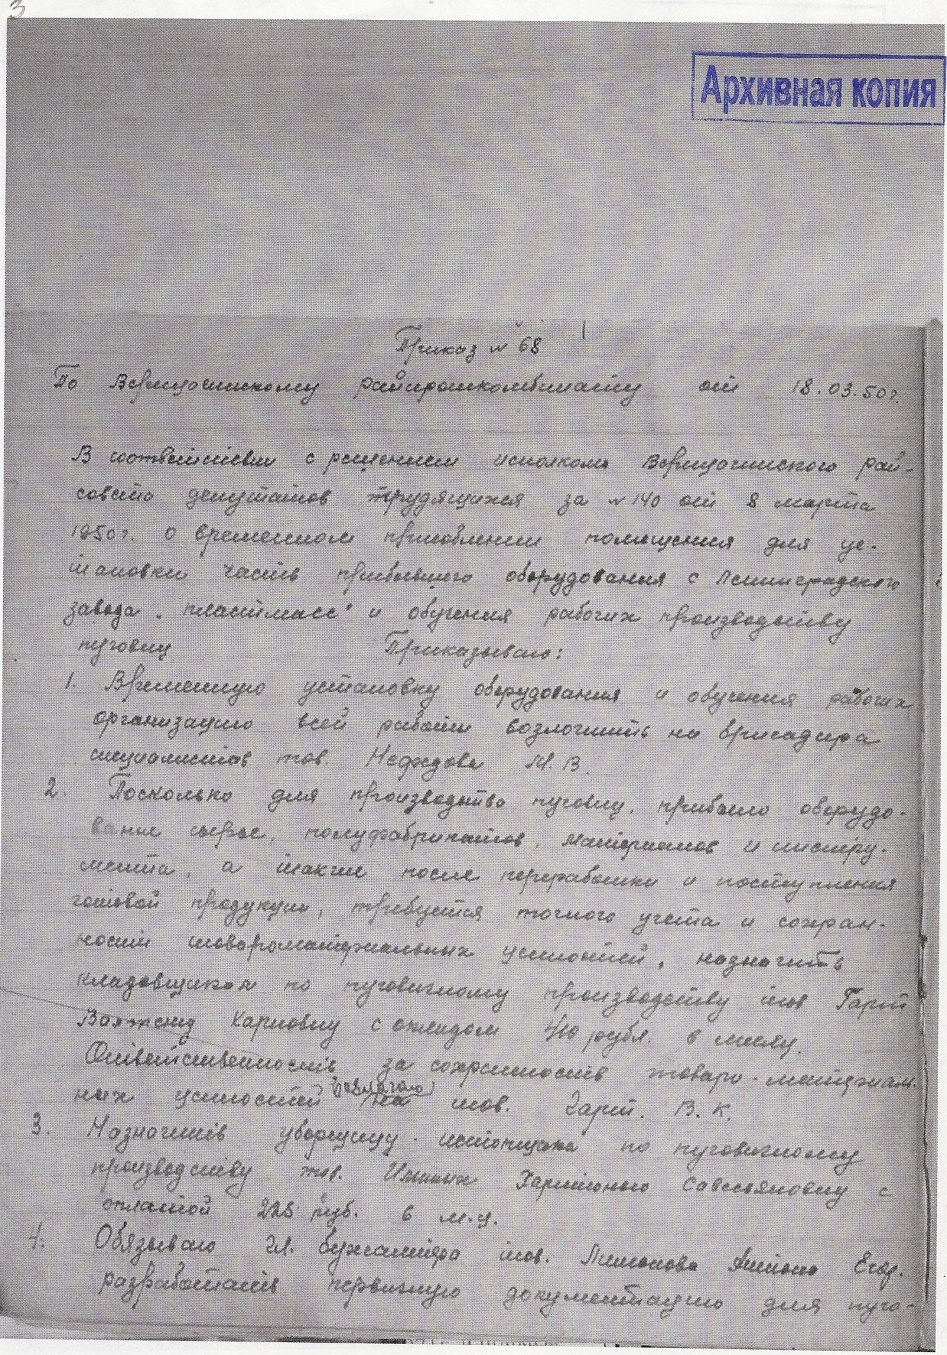 3
Архивная копия
Приказ № 68
По Верещагинскому райпромкомбинату от 18.03.50г.
В соответствии с решением исполкома Верещагинского рай-
совета депутатов трудящихся за № 140 от 8 марта
1950г. о временном приспоблении помещения для ус-
тановки части прибывшего оборудования с Ленинградского
завода „пластмасс" и обучения рабочих производству
пуговиц Приказываю:
1. Временную установку оборудования и обучения рабочих
организацию всей работы возложить на бригадира
специалистов тов. Нефедова М. В.
2. Посколько для производства пуговиц, прибыло оборудо-
вание сырье, полуфабрикатов, материалов и инстру-
мента, а также после переработки и поступления
готовой продукции, требуется точного учета и сохран-
ности товароматериальных ценностей, назначить
кладовщиком по пуговичному производству тов Гарт
Карповну с окладом 410 рубл. в месяц.
Ответственность за сохранность товаро-материаль-
ных ценностей возлагаю на тов. Гарт. В. К.
3. Назначить уборщицу-истопника по пуговичному
производству тов. Харитонью Савельяновну с
оплатой 225 руб. в м-ц.
4. Обязываю гл. бухгалтера тов. Лимонова Антона Егор.
разработать первичную документацию для пуго-